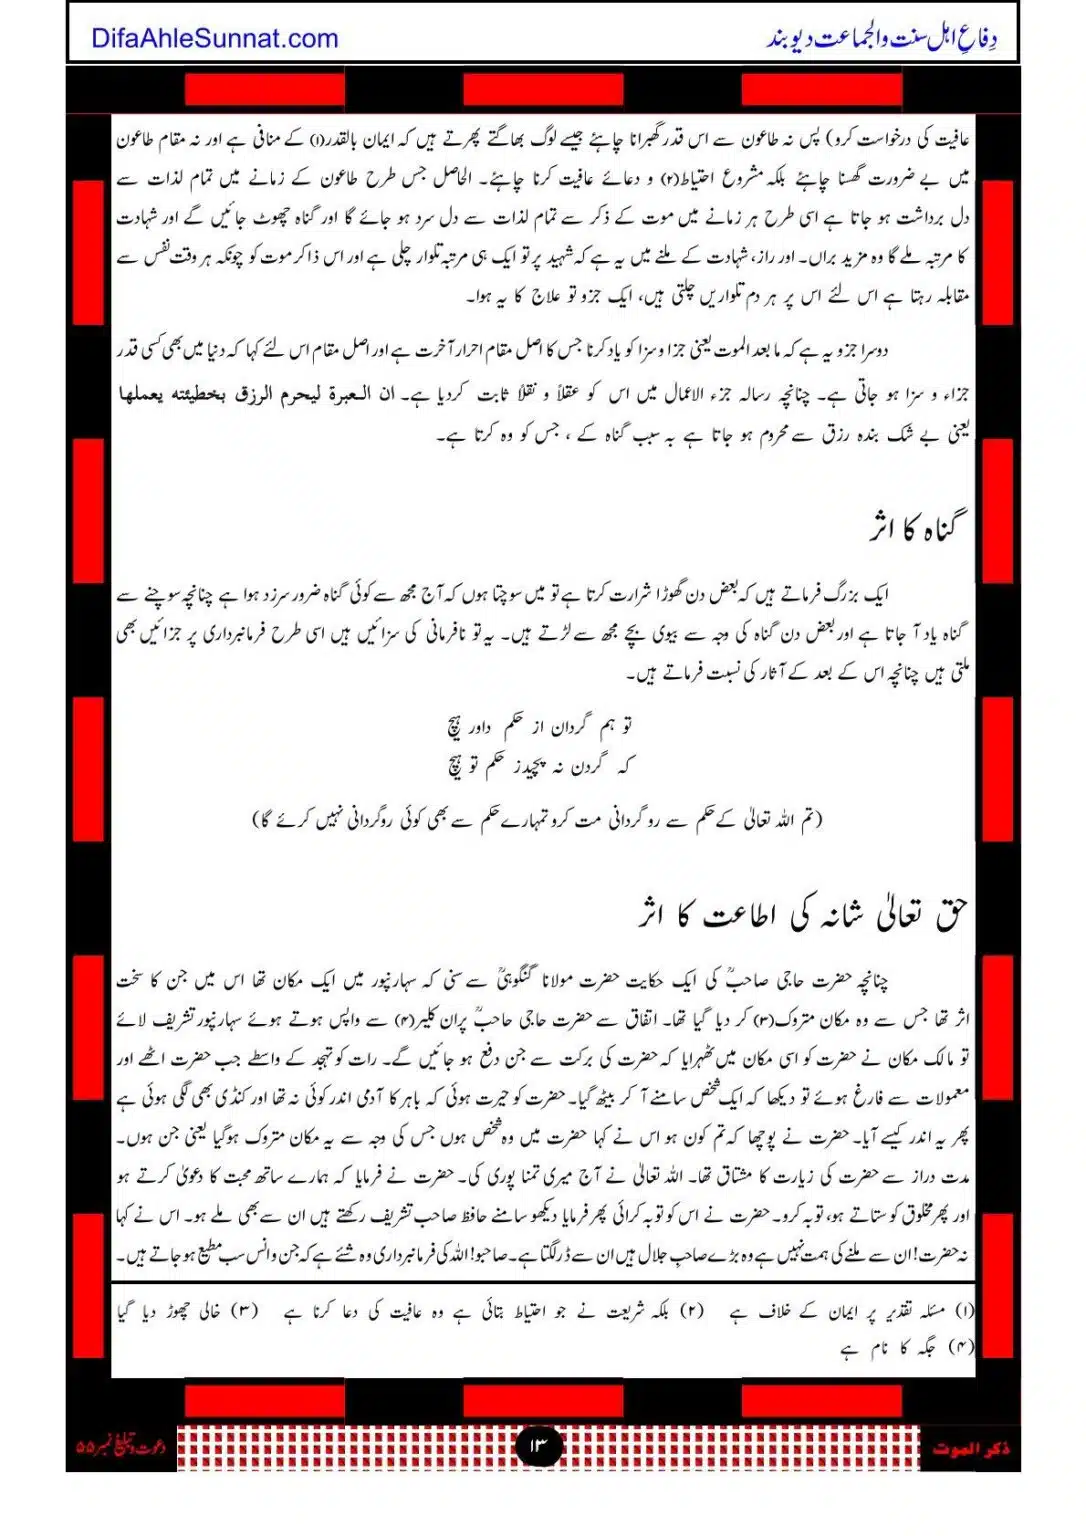 DifaAhleSunnat.com
دِفاعِ اہل سنت والجماعت دیوبند
عافیت کی درخواست کرو) پس نہ طاعون سے اس قدر گھبرانا چاہئے جیسے لوگ بھاگتے پھرتے ہیں کہ ایمان بالقدر(۱) کے منافی ہے اور نہ مقام طاعون
میں بے ضرورت گھسنا چاہئے بلکہ مشروع احتیاط(۲) و دعائے عافیت کرنا چاہئے۔ الحاصل جس طرح طاعون کے زمانے میں تمام لذات سے
دل برداشت ہو جاتا ہے اسی طرح ہر زمانے میں موت کے ذکر سے تمام لذات سے دل سرد ہو جائے گا اور گناہ چھوٹ جائیں گے اور شہادت
کا مرتبہ ملے گا وہ مزید براں۔ اور راز، شہادت کے ملنے میں یہ ہے کہ شہید پر تو ایک ہی مرتبہ تلوار چلی ہے اور اس ذاکر موت کو چونکہ ہر وقت نفس سے
مقابلہ رہتا ہے اس لئے اس پر ہر دم تلواریں چلتی ہیں، ایک جزو تو علاج کا یہ ہوا۔
دوسرا جزو یہ ہے کہ مابعد الموت یعنی جزا و سزا کو یاد کرنا جس کا اصل مقام احرار آخرت ہے اور اصل مقام اس لئے کہا کہ دنیا میں بھی کسی قدر
جزاء و سزا ہو جاتی ہے۔ چنانچہ رسالہ جزء الاعمال میں اس کو عقلاً و نقلاً ثابت کردیا ہے۔ ان العبرۃ لیحرم الرزق بخطیئتہ یعملھا
یعنی بے شک بندہ رزق سے محروم ہو جاتا ہے بہ سبب گناہ کے ، جس کو وہ کرتا ہے۔
گناہ کا اثر
ایک بزرگ فرماتے ہیں کہ بعض دن گھوڑا شرارت کرتا ہے تو میں سوچتا ہوں کہ آج مجھ سے کوئی گناہ ضرور سرزد ہوا ہے چنانچہ سوچنے سے
گناہ یاد آ جاتا ہے اور بعض دن گناہ کی وجہ سے بیوی بچے مجھ سے لڑتے ہیں۔ یہ تو نافرمانی کی سزائیں ہیں اسی طرح فرمانبرداری پر جزائیں بھی
ملتی ہیں چنانچہ اس کے بعد کے آثار کی نسبت فرماتے ہیں۔
تو ہم گردان از حکم داور ہیچ
کہ گردن نہ پیچیدز حکم تو ہیچ
(تم اللہ تعالیٰ کے حکم سے رو گردانی مت کرو تمہارے حکم سے بھی کوئی روگردانی نہیں کرئے گا)
حق تعالیٰ شانہ کی اطاعت کا اثر
چنانچہ حضرت حاجی صاحبؒ کی ایک حکایت حضرت مولانا گنگوہیؒ سے سنی کہ سہارنپور میں ایک مکان تھا اس میں جن کا سخت
اثر تھا جس سے وہ مکان متروک(۳) کر دیا گیا تھا۔ اتفاق سے حضرت حاجی حاحبؒ پران کلیر(۴) سے واپس ہوتے ہوئے سہارنپور تشریف لائے
تو مالک مکان نے حضرت کو اسی مکان میں ٹھہرایا کہ حضرت کی برکت سے جن دفع ہو جائیں گے۔ رات کو تہجد کے واسطے جب حضرت اٹھے اور
معمولات سے فارغ ہوئے تو دیکھا کہ ایک شخص سامنے آ کر بیٹھ گیا۔ حضرت کو حیرت ہوئی کہ باہر کا آدمی اندر کوئی نہ تھا اور کنڈی بھی لگی ہوئی ہے
پھر یہ اندر کیسے آیا۔ حضرت نے پوچھا کہ تم کون ہو اس نے کہا حضرت میں وہ شخص ہوں جس کی وجہ سے یہ مکان متروک ہوگیا یعنی جن ہوں۔
مدت دراز سے حضرت کی زیارت کا مشتاق تھا۔ اللہ تعالیٰ نے آج میری تمنا پوری کی۔ حضرت نے فرمایا کہ ہمارے ساتھ محبت کا دعویٰ کرتے ہو
اور پھر مخلوق کو ستاتے ہو، توبہ کرو۔ حضرت نے اس کو توبہ کرائی پھر فرمایا دیکھو سامنے حافظ صاحب تشریف رکھتے ہیں ان سے بھی ملے ہو۔ اس نے کہا
نہ حضرت! ان سے ملنے کی ہمت نہیں ہے وہ بڑے صاحبِ جلال ہیں ان سے ڈر لگتا ہے۔ صاحبو! اللہ کی فرمانبرداری وہ شئے ہے کہ جن و انس سب مطیع ہو جاتے ہیں۔
(۱) مسئلہ تقدیر پر ایمان کے خلاف ہے (۲) بلکہ شریعت نے جو احتیاط بتائی ہے وہ عافیت کی دعا کرنا ہے (۳) خالی چھوڑ دیا گیا
(۴) جگہ کا نام ہے
ذکر الموت
۱۳
دعوت و تبلیغ نمبر ۵۵